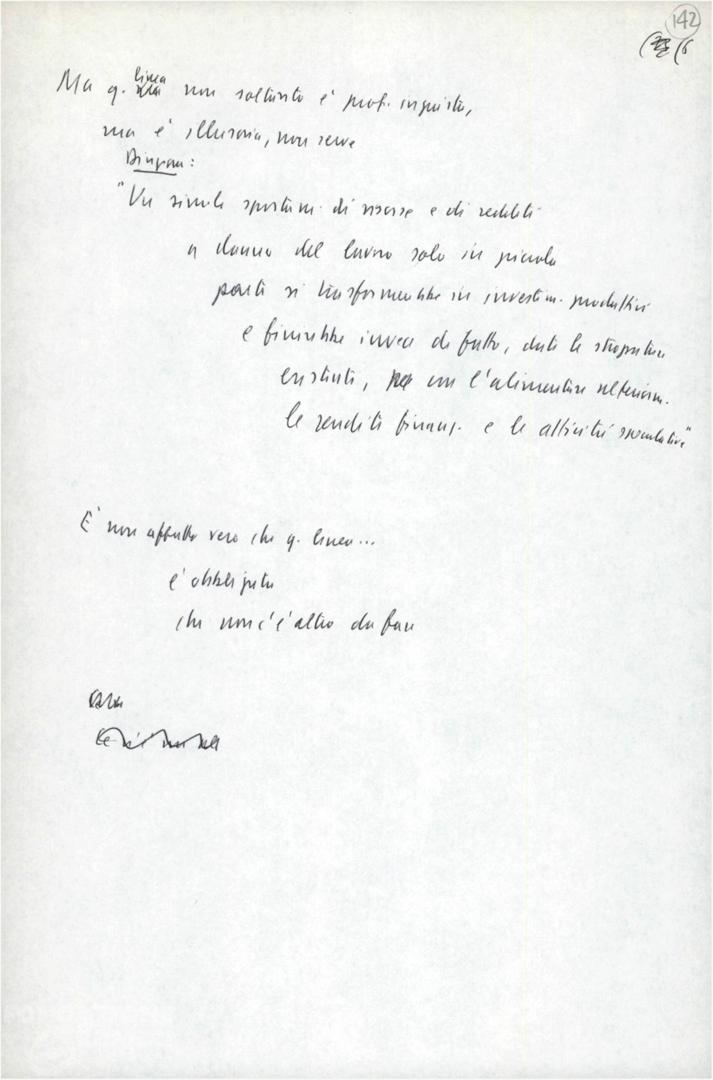 142
(6
Ma q. linea non soltanto è prof. ingiusta,
ma è illusoria, non serve
"Un simile spostam. di risorse e di redditi
a danno del lavoro solo in piccola
parte si trasformerebbe in investim. produttivi
e finirebbe invece di fatto, date le strozzature
esistenti, con l'alimentare ulteriorm.
le rendite finanz. e le attività speculative"
E' non affatto vero che q. linea...
è obbligata
che non c'è altro da fare